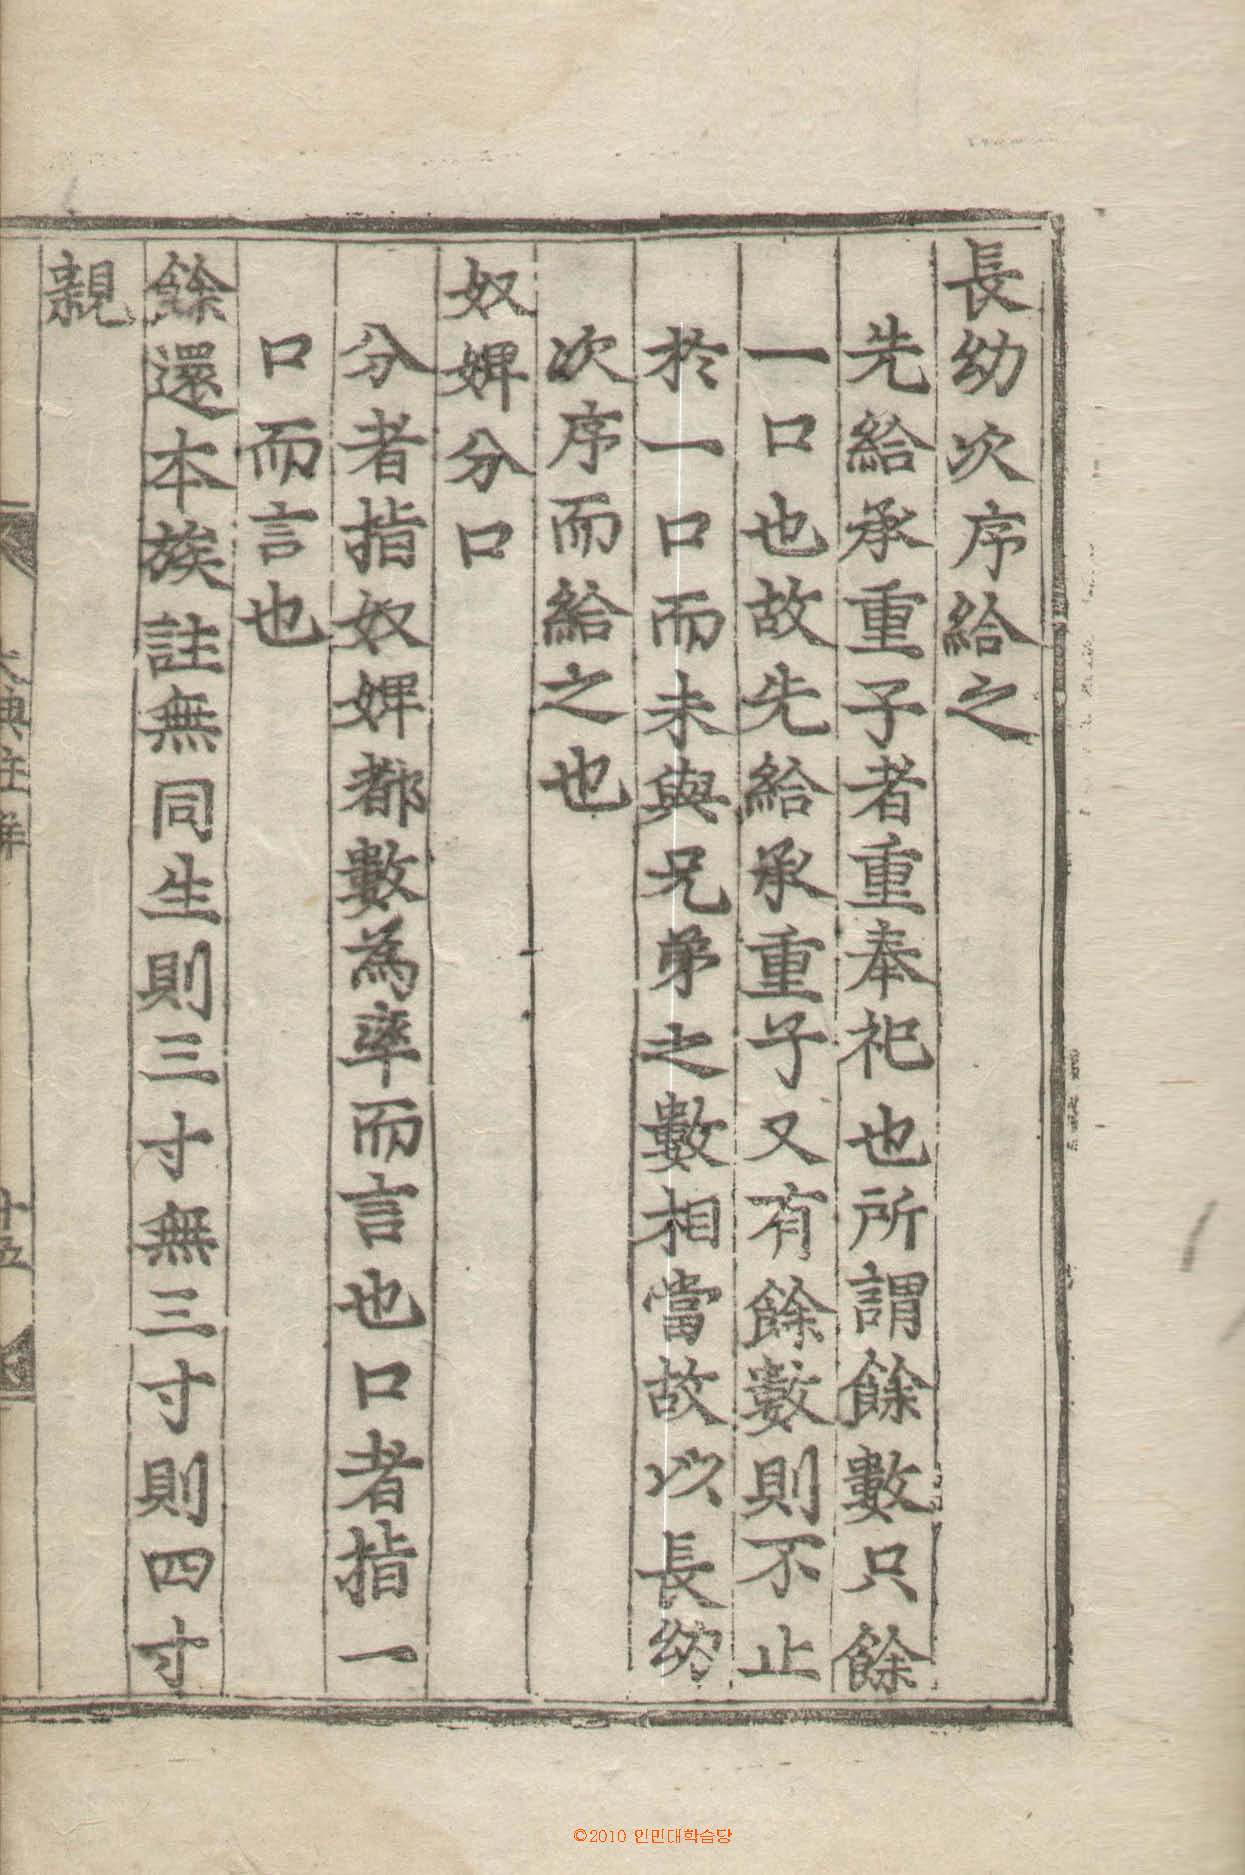 長幼次序給之
先給承重子者重奉祀也所謂餘數只餘
一口也故先給承重子又有餘數則不止
於一口而未與兄弟之數相當故以長幼
次序而給之也
奴婢分口
分者指奴婢都數為率而言也口者指一
口而言也
餘還本族註無同生則三寸無三寸則四寸
親
十五
©2010 인민대학습당